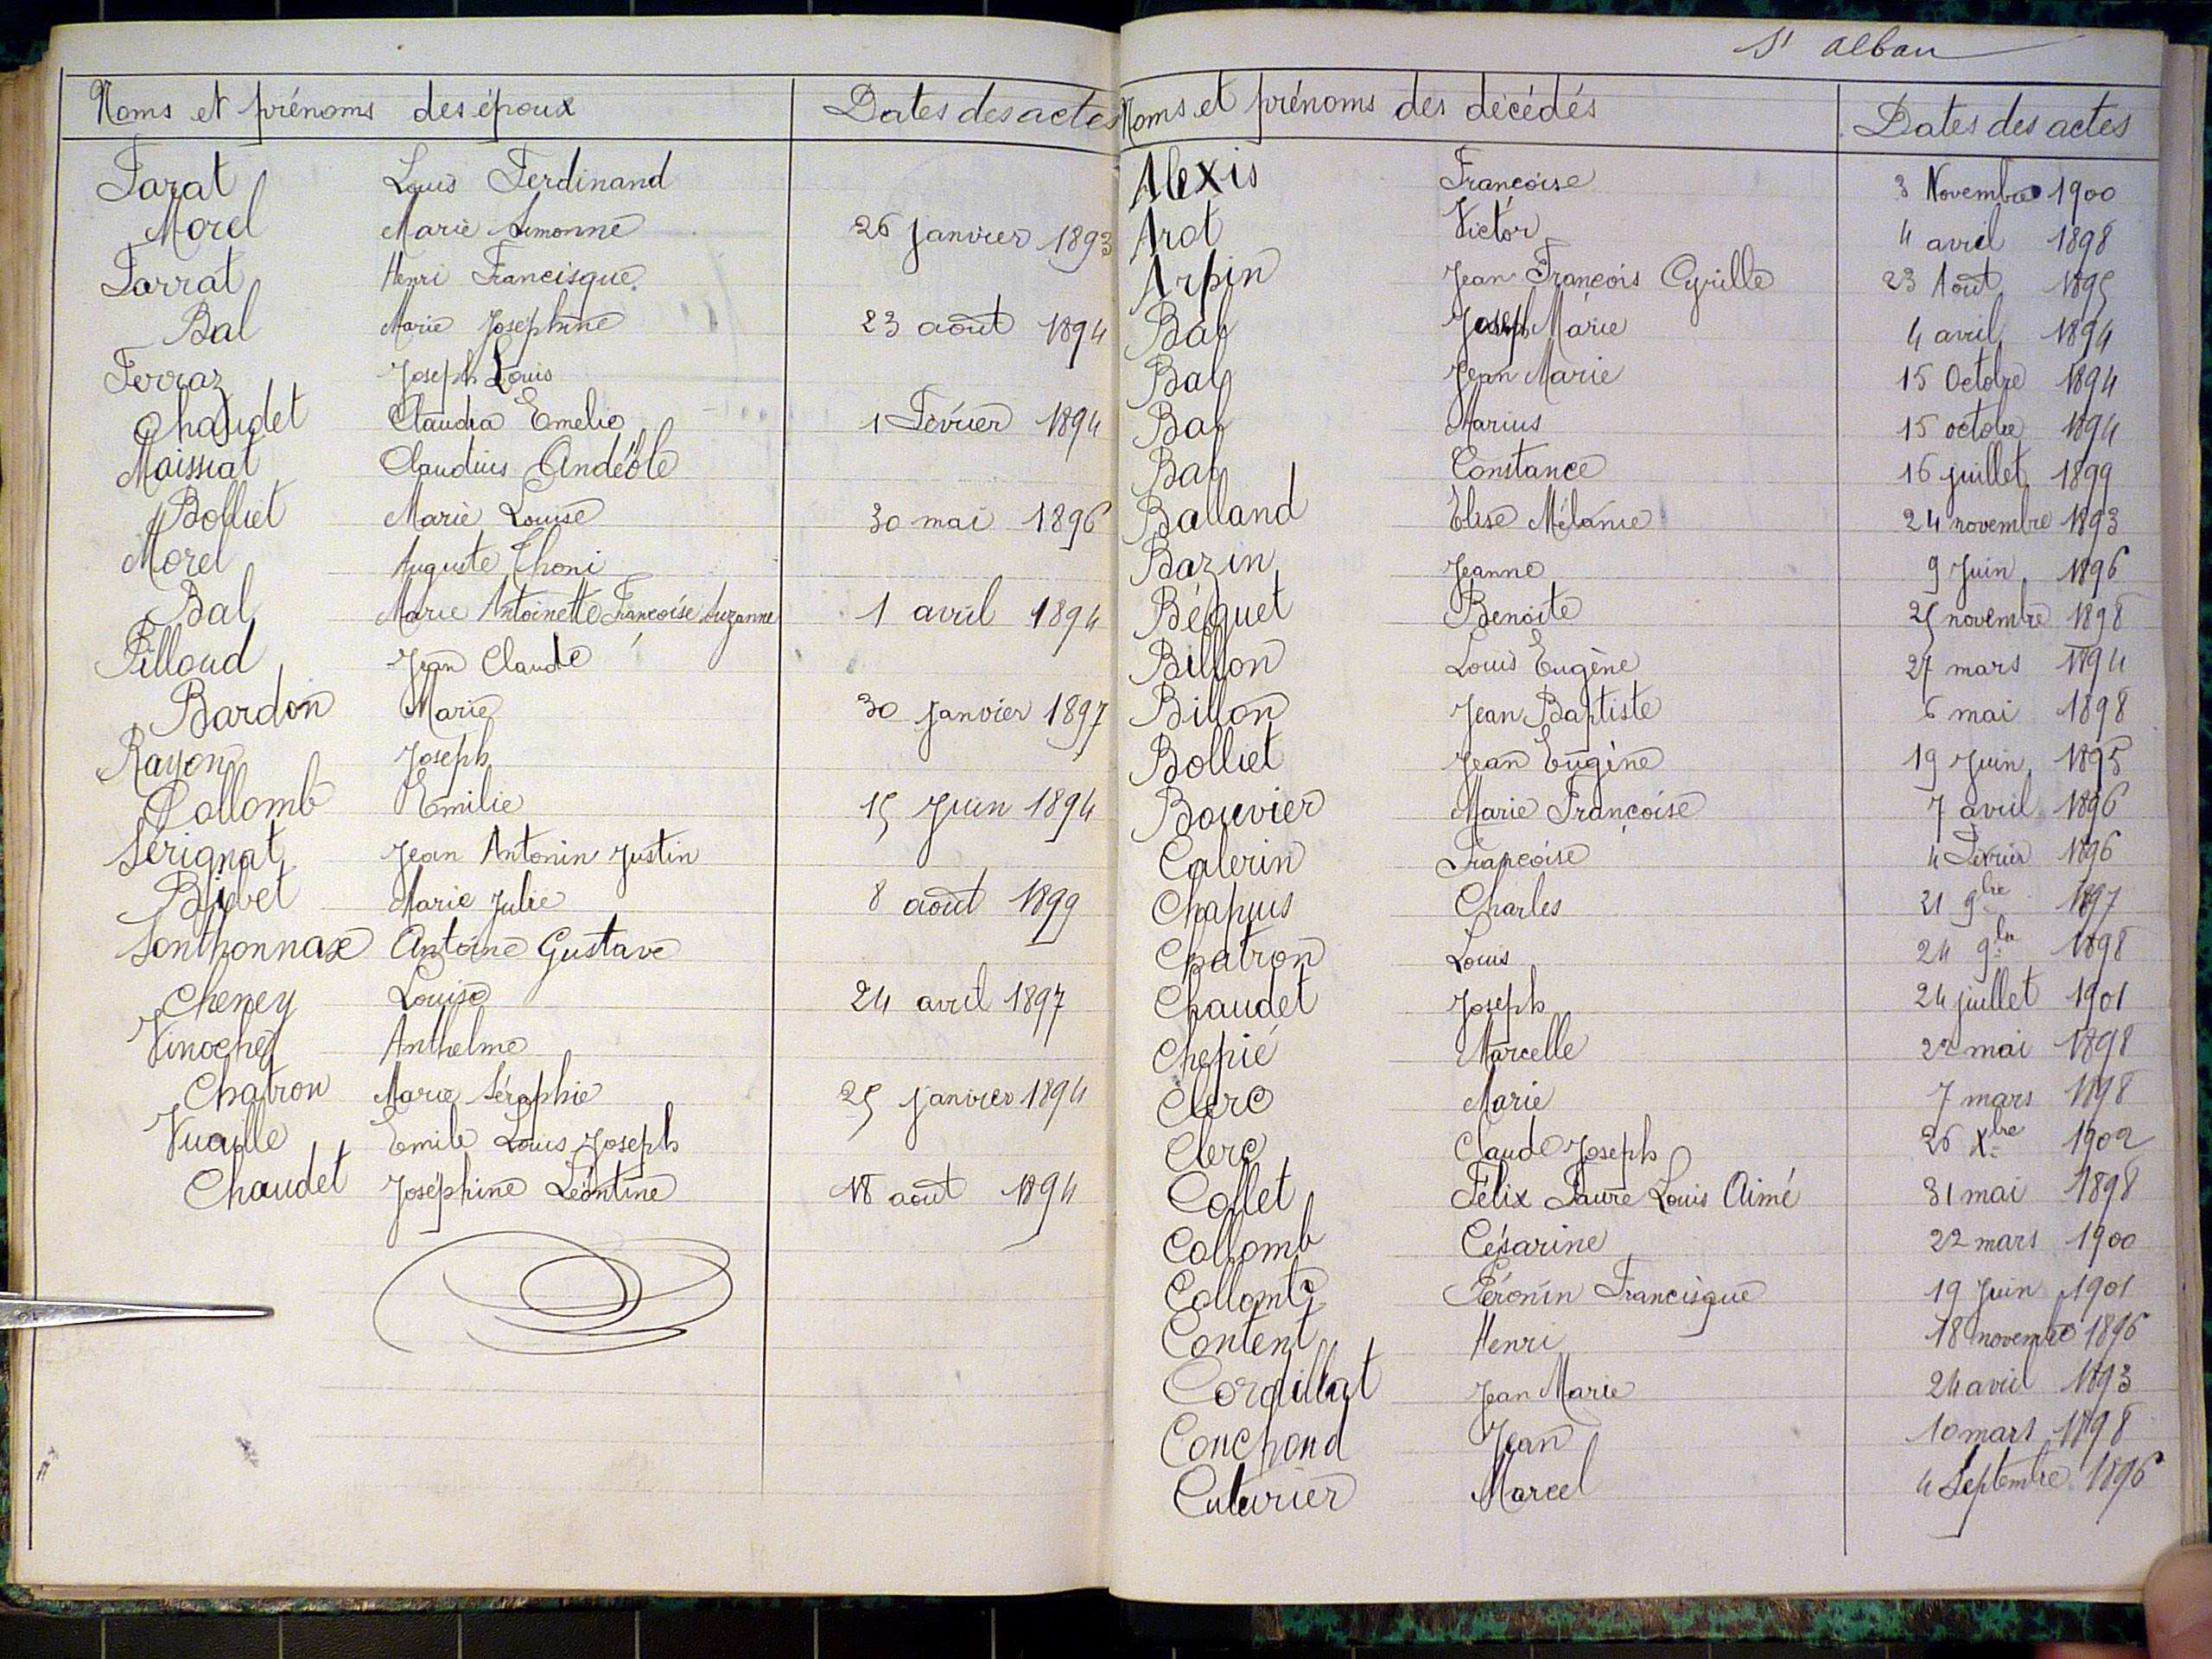 Noms et prénoms des époux Dates des actes
Farat Louis Ferdinand
Morel Marie Simonne 26 janvier 1893
Farrat Henri Francisque
Bal Marie Joséphine 23 août 1894
Ferraz Joseph Louis
Chaudet Claudia Emelie 1 Février 1894
Maissiat Claudius Andéole
Bolliet Marie Louise 30 mai 1896
Morel Auguste Thoni
Bal Marie Antoinette Françoise Suzanne 1 avril 1894
Pilloud Jean Claude
Bardon Marie 30 janvier 1897
Rayon Joseph
Collomb Emilie 15 Juin 1894
Sérignat Jean Antonin Justin
Marie Julie 8 août 1899
Sonthonnax Antoine Gustave
Cheney Louise 24 avril 1897
Vinochey Anthelme
Chatron Marie Séraphie 25 janvier 1894
Vuaille Emile Louis Joseph
Chaudet Joséphine Léontine 18 août 1894
St alban
Noms et prénoms des décédés Dates des actes
Alexis Françoise 3 Novembre 1900
Arot Victor 4 avril 1898
Arpin Jean François Cyrille 23 Août 1895
Bal Joseph Marie 4 avril 1894
Bal Jean Marie 15 Octobre 1894
Bal Marius 15 octobre 1894
Bal Constance 16 juillet 1899
Balland Elise Mélanie 24 novembre 1893
Bazin Jeanne 9 Juin 1896
Béquet Benoite 25 novembre 1898
Billon Louis Eugène 27 mars 1894
Billon Jean Baptiste 6 mai 1898
Bolliet Jean Eugène 19 Juin 1895
Bouvier Marie Françoise 7 avril 1896
Calerin Françoise 4 Février 1896
Chapuis Charles 21 9bre 1897
Chatron Louis 24 9bre 1898
Chaudet Joseph 24 juillet 1901
Chepié Marcelle 22 mai 1898
Clerc Marie 7 mars 1898
Clerc Claude Joseph 26 Xbre 1902
Collet Félix Faure Louis Aimé 31 mai 1898
Collomb Césarine 22 mars 1900
Collomb Péronin Francisque 19 Juin 1901
Content Henri 18 novembre 1896
Cordillat Jean Marie 24 avril 1893
Conchond Jean 10 mars 1898
Cuteurier Marcel 4 Septembre 1896